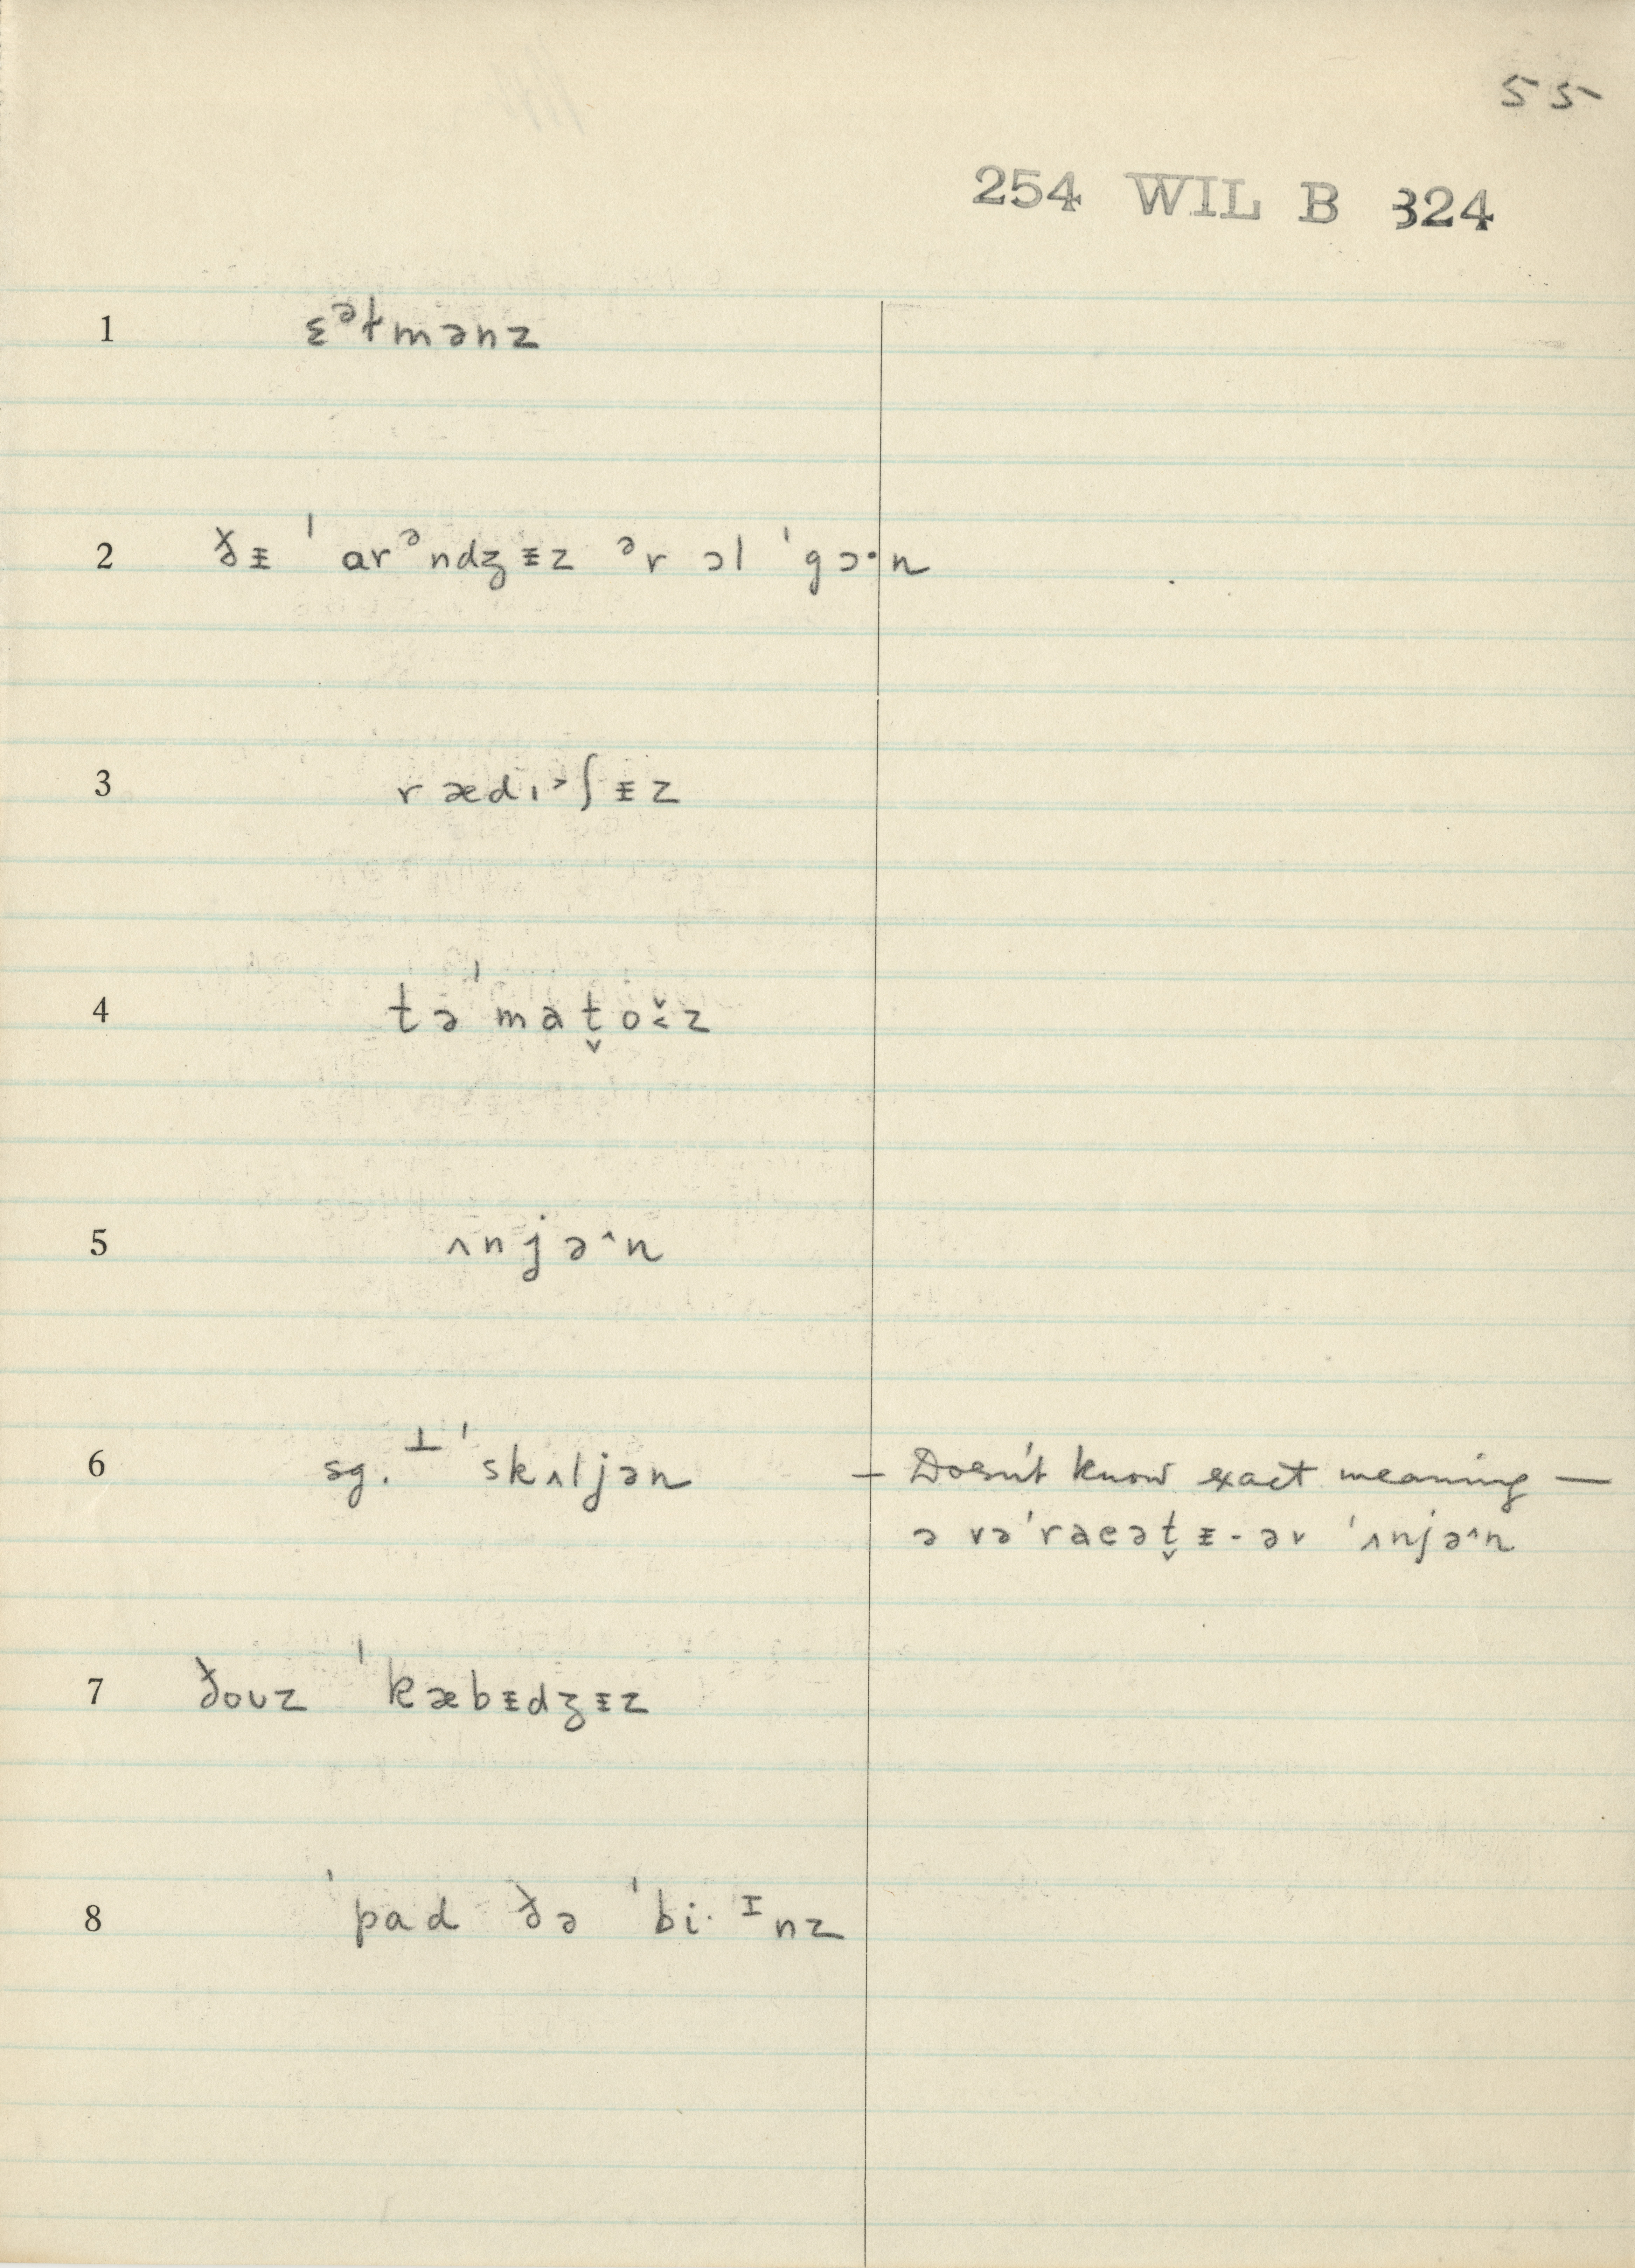 55
254 WIL B 324
1 ɛᵊɫmənz
2 ðᵻ ˈarᵊndʒᵻz ᵊr ɔl ˈgɔ·n
3 rædı˃ʃᵻz
4 təˈmat̬oʊ̯̌z
5 ʌnjə^n
6 sg. ⊥ ˈskʌljən — Doesn't know exact meaning —
ə vəˈraeət̬ᵻ- əv ˈʌnjə^n
7 ðouz ˈkæbᵻdʒᵻz
8 ˈpad ðə ˈbi·ᶦnz